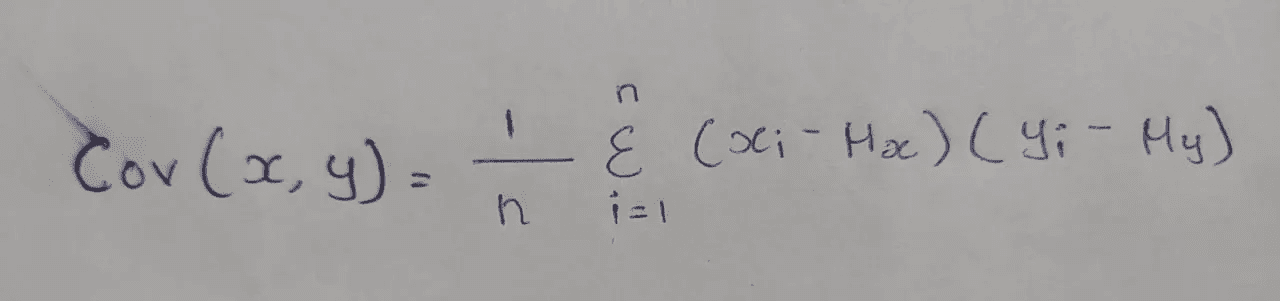 Cov(x, y) = 1/n Σ_{i=1}^{n} (x_i - μ_x)(y_i - μ_y)